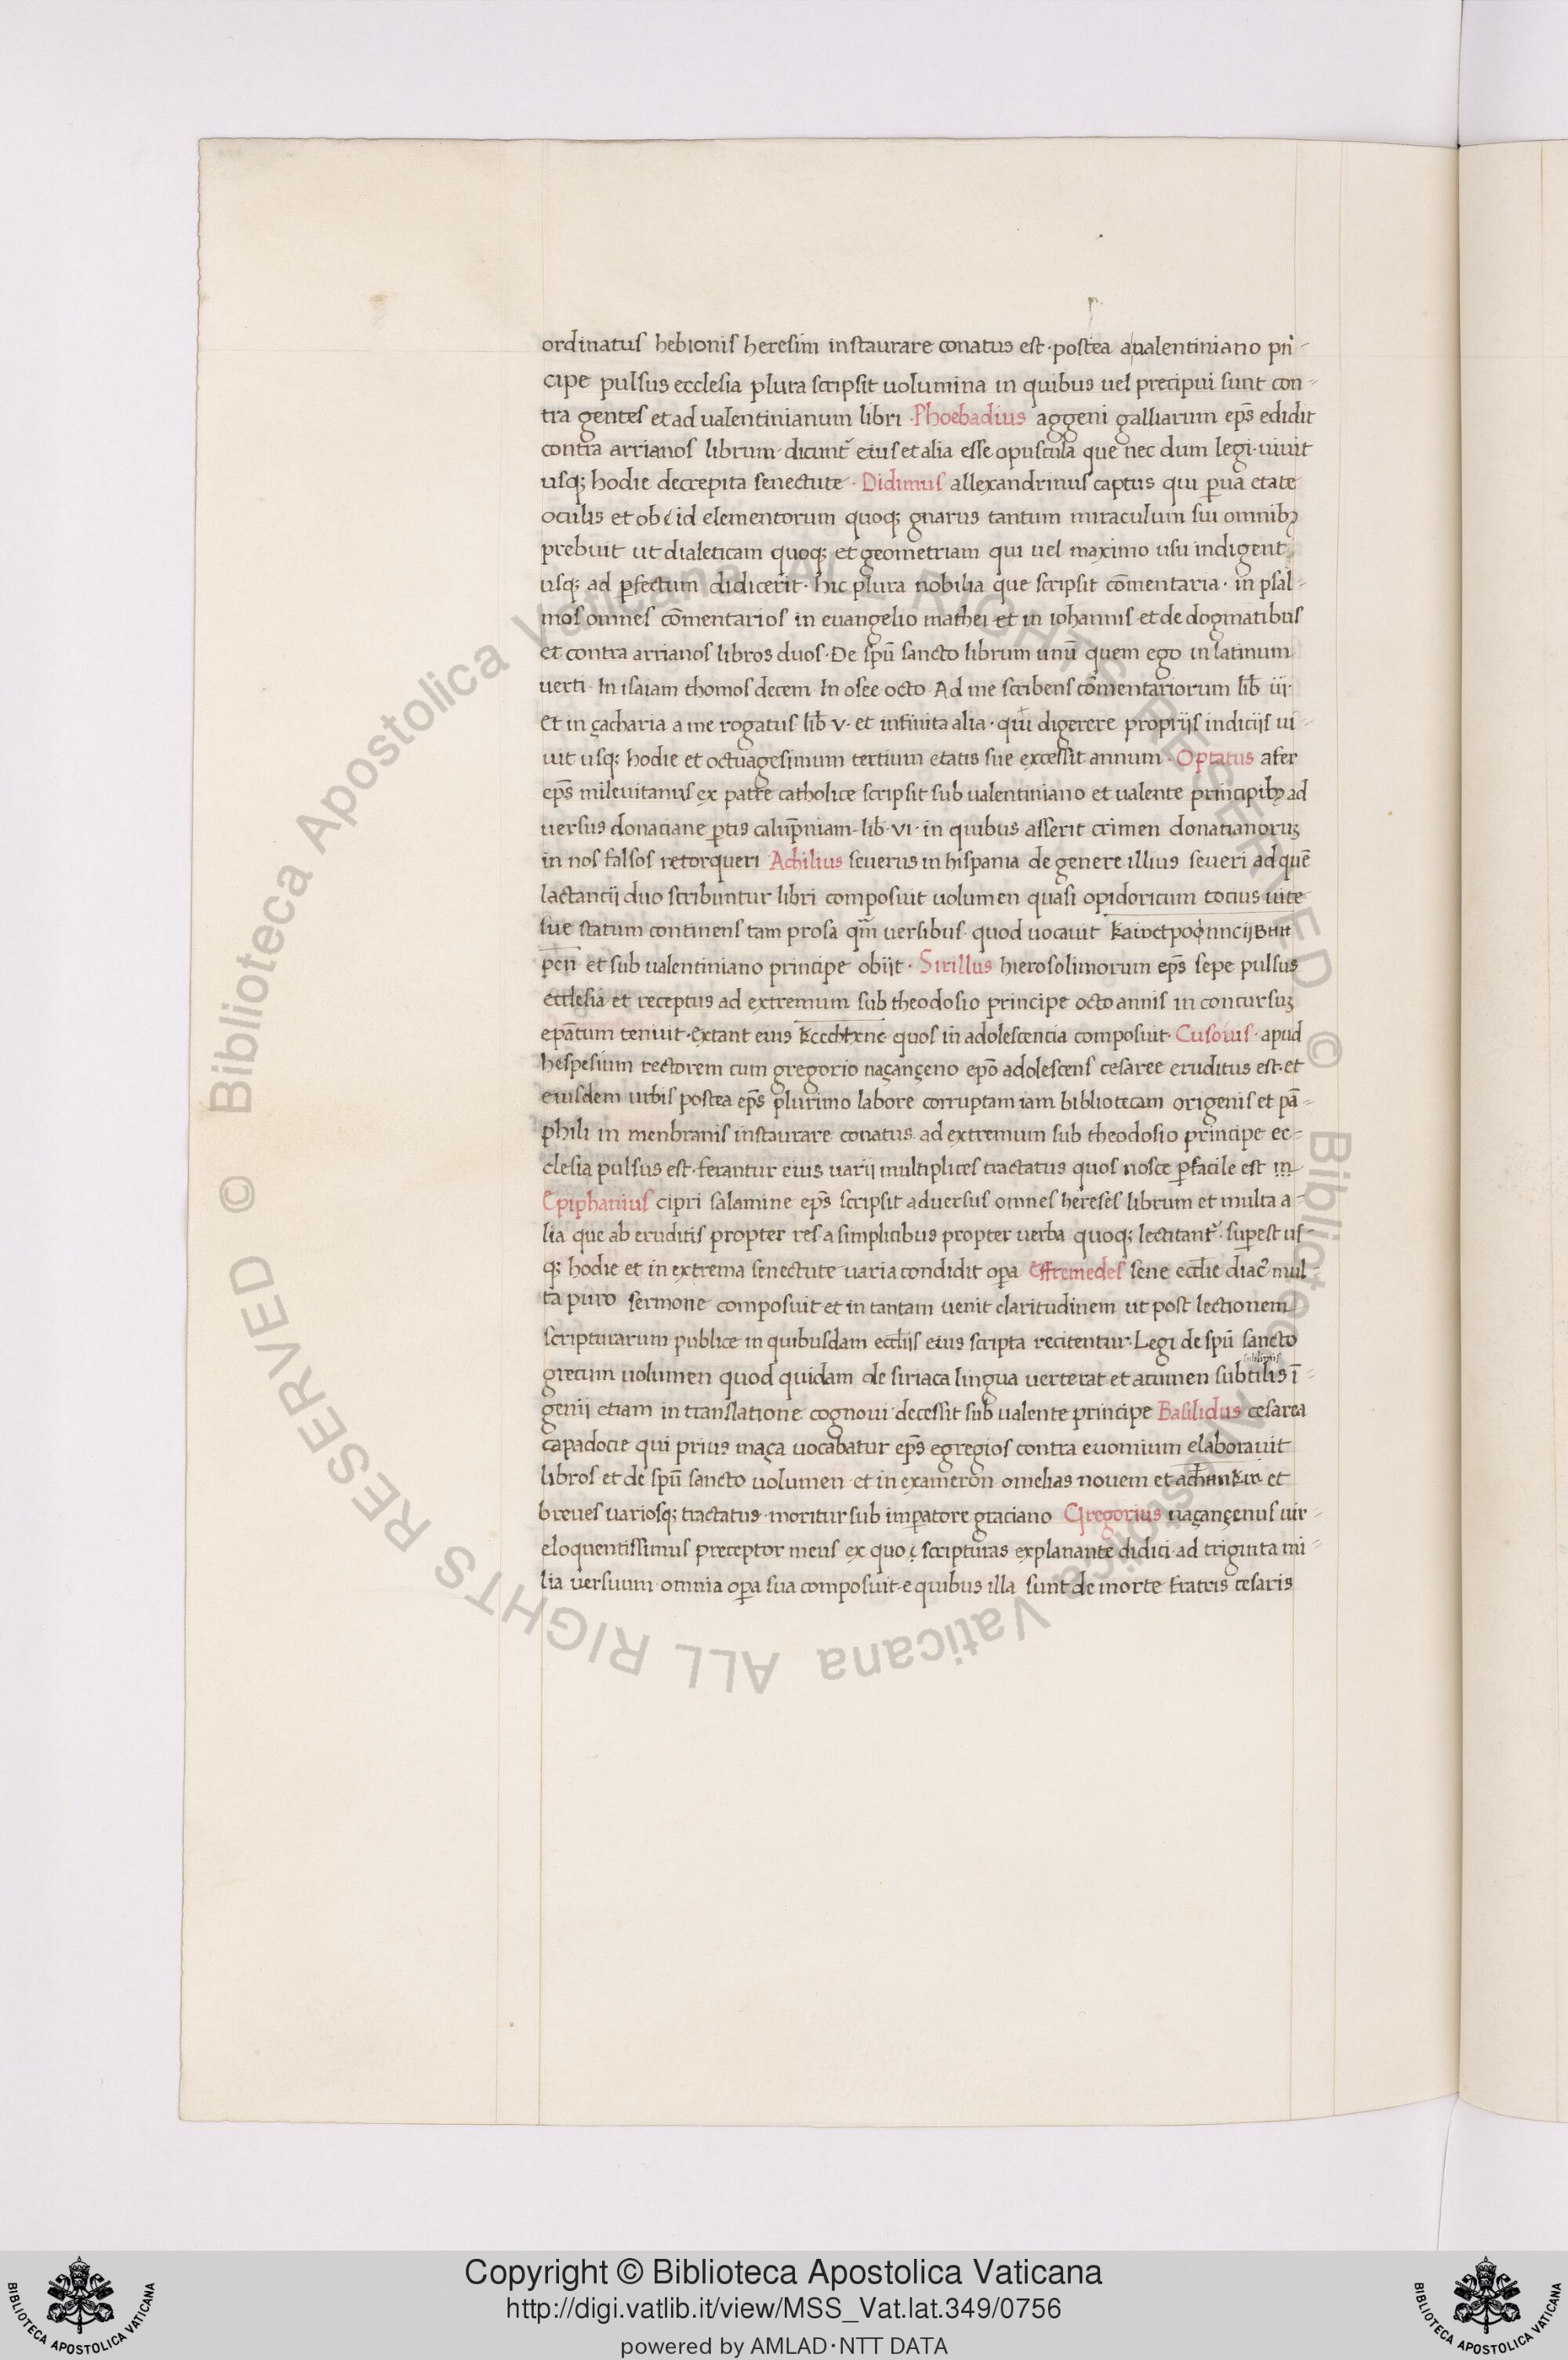 ordinatus hebionis heresim instaurare conatus est · postea aualentiniano pri-
cipe pulsus ecclesia plura scripsit uolumina in quibus uel precipui sunt con-
tra gentes et ad ualentinianum libri · Phoebadius aggeni galliarum ep̄s edidit
contra arrianos librum · dicunt᷑ eius et alia esse opuscula que nec dum legi · uiuit
usq; hodie decrepita senectute · Didimus allexandrinus captus qui ꝑua etate
oculis et ob id elementorum quoq; gnarus tantum miraculum sui omnibꝫ
prebuit ut dialeticam quoq; et geometriam qui uel maximo usu indigent
usq; ad ꝑfectum didicerit · hic plura nobilia que scripsit cōmentaria · in psal-
mos omnes cōmentarios in euangelio mathei et in iohannis et de dogmatibus
et contra arrianos libros duos · De sp̄u sancto librum unū quem ego in latinum
uerti · In isaiam thomos decem · In osee octo · Ad me scribens cōmentariorum lib̄ iij ·
et in çacharia a me rogatus lib̄ v · et infinita alia · qui digerere proprijs indicijs ui-
uit usq; hodie et octuagesimum tertium etatis sue excessit annum · Optatus afer
ep̄s mileuitanus ex patre catholice scripsit sub ualentiniano et ualente principibꝫ ad
uersus donaciane ꝑtis calūpniam · lib̄ · VI · in quibus asserit crimen donatianoruꝫ
in nos falsos retorqueri Achilius seuerus in hispania de genere illius seueri ad quē
lactancij duo scribuntur libri composuit uolumen quasi opidoricum tocius uite
sue statum continens tam prosa qm̄ uersibus quod uocauit
et sub ualentiniano principe obijt · Sirillus hierosolimorum ep̄s sepe pulsus
ecclesia et receptus ad extremum sub theodosio principe octo annis in concursuꝫ
ep̄atum tenuit · extant eius quos in adolescencia composuit · Cusoius · apud
hespesium rectorem cum gregorio naçançeno ep̄o adolescens cesaree eruditus est · et
eiusdem urbis postea ep̄s plurimo labore corruptam iam bibliotecam origenis et pā-
phili in menbranis instaurare conatus ad extremum sub theodosio principe ec-
clesia pulsus est · ferantur eius uarij multiplices tractatus quos nosce ꝑfacile est
Epiphanius cipri salamine ep̄s scripsit aduersus omnes hereses librum et multa a-
lia que ab eruditis propter res · a simplicibus propter uerba quoq; lectitant᷑ · suꝑest us-
q; hodie et in extrema senectute uaria condidit oꝑa Effremedes sene eccl̄ie diac̄ mul-
ta puro sermone composuit et in tantam uenit claritudinem ut post lectionem
scripturarum publice in quibusdam eccl̄ijs eius scripta recitentur · Legi de sp̄u sancto
grecum uolumen quod quidam de siriaca lingua uerterat et acumen subtilis ī-
genij etiam in translatione cognoui · decessit sub ualente principe Basilidus cesarea
capadocie qui prius maça uocabatur ep̄s egregios contra euomium elaborauit
libros et de sp̄u sancto uolumen et in exameron omelias nouem et et
breues uariosq; tractatus · moritur sub imꝑatore graciano Gregorius naçançenus uir
eloquentissimus preceptor meus ex quo scripturas explanante didici · ad triginta mi-
lia uersuum omnia oꝑa sua composuit · e quibus illa sunt de morte fratris cesaris
© Biblioteca Apostolica Vaticana ALL RIGHTS RESERVED © Biblioteca Apostolica Vaticana ALL RIGHTS RESERVED
Copyright © Biblioteca Apostolica Vaticana
http://digi.vatlib.it/view/MSS_Vat.lat.349/0756
powered by AMLAD·NTT DATA
BIBLIOTECA APOSTOLICA VATICANA
BIBLIOTECA APOSTOLICA VATICANA